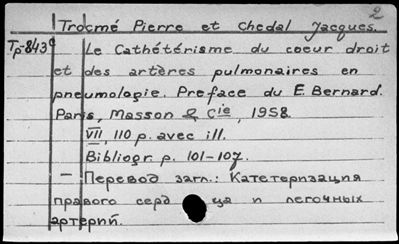 2
Trocmé Pierre et Chedal Jacques.
Tp-843c Le Cathétérisme du coeur droit
et des artères pulmonaires en
pneumologie. Preface du E. Bernard.
Paris, Masson & Cie, 1958.
VII, 110 p. avec ill.
Bibliogr. p. 101-107.
— Перевод загл.: Катетеризация
правого серд ца и легочных
артерий.